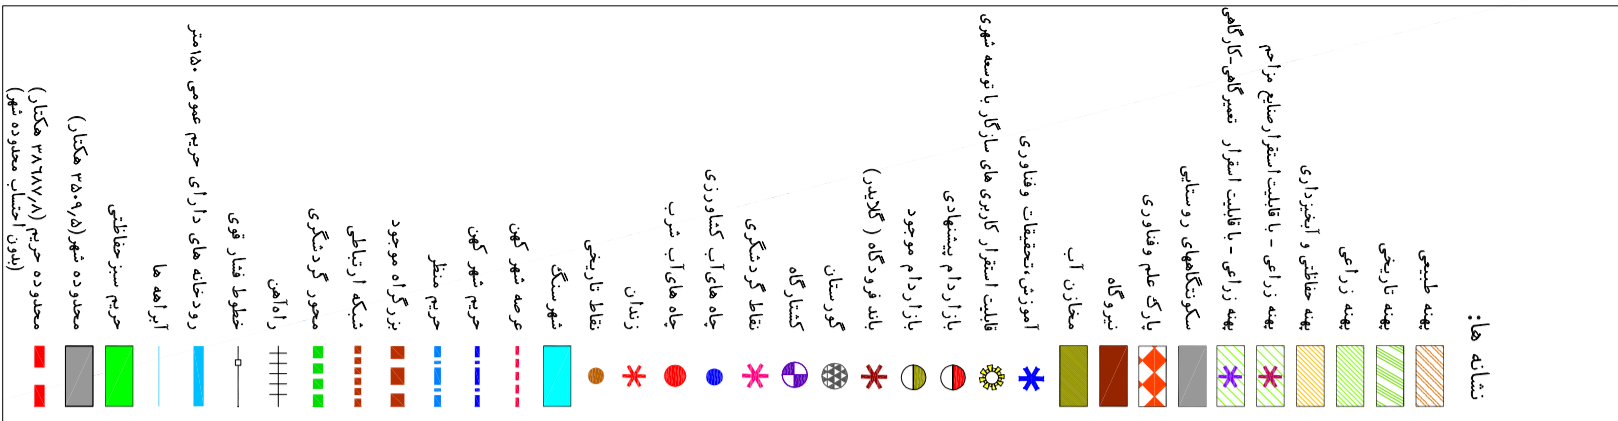 نشانه ها:
پهنه طبیعی
پهنه تاریخی
پهنه زراعی
پهنه حفاظتی و آبخیزداری
پهنه زراعی - با قابلیت استقرار صنایع مزاحم
پهنه زراعی - با قابلیت اسقرار تعمیرگاهی-کارگاهی
سکونتگاههای روستایی
پارک علم و فناوری
نیروگاه
مخازن آب
آموزش،تحقیقات و فناوری
قابلیت استقرار کاربری های سازگار با توسعه شهری
بازار دام پیشنهادی
بازار دام موجود
باند فرودگاه ( گلایدر)
گورستان
کشتارگاه
نقاط گردشگری
چاه های آب کشاورزی
چاه های آب شرب
زندان
نقاط تاریخی
شهر سنگ
عرصه شهر کهن
حریم شهر کهن
حریم منظر
بزرگراه موجود
شبکه ارتباطی
محور گردشگری
راه آهن
خطوط فشار قوی
رودخانه های دارای حریم عمومی ۱۵۰ متر
آبراهه ها
حریم سبز حفاظتی
محدوده شهر(۳۵۰۹٫۵ هکتار)
محدوده حریم (۳۸۶۸۷٫۸ هکتار)
(بدون احتساب محدوده شهر)